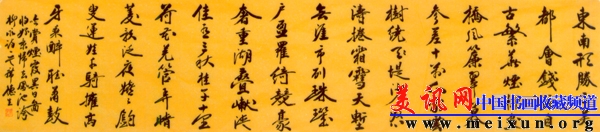 東南形勝三吳
都會錢塘自
古繁華煙柳畫
橋風簾翠幕
參差十萬人家雲
樹繞堤沙怒
濤捲霜雪天塹
無涯市列珠璣
戶盈羅綺競豪
奢重湖疊巘清
佳有三秋桂子十里
荷花羌管弄晴
菱歌泛夜嬉嬉釣
叟蓮娃千騎擁高
牙乘醉聽簫鼓
吟賞煙霞異日圖
將好景歸去鳳池誇
柳永詞
美讯网 中国书画收藏频道
www.meixun.org